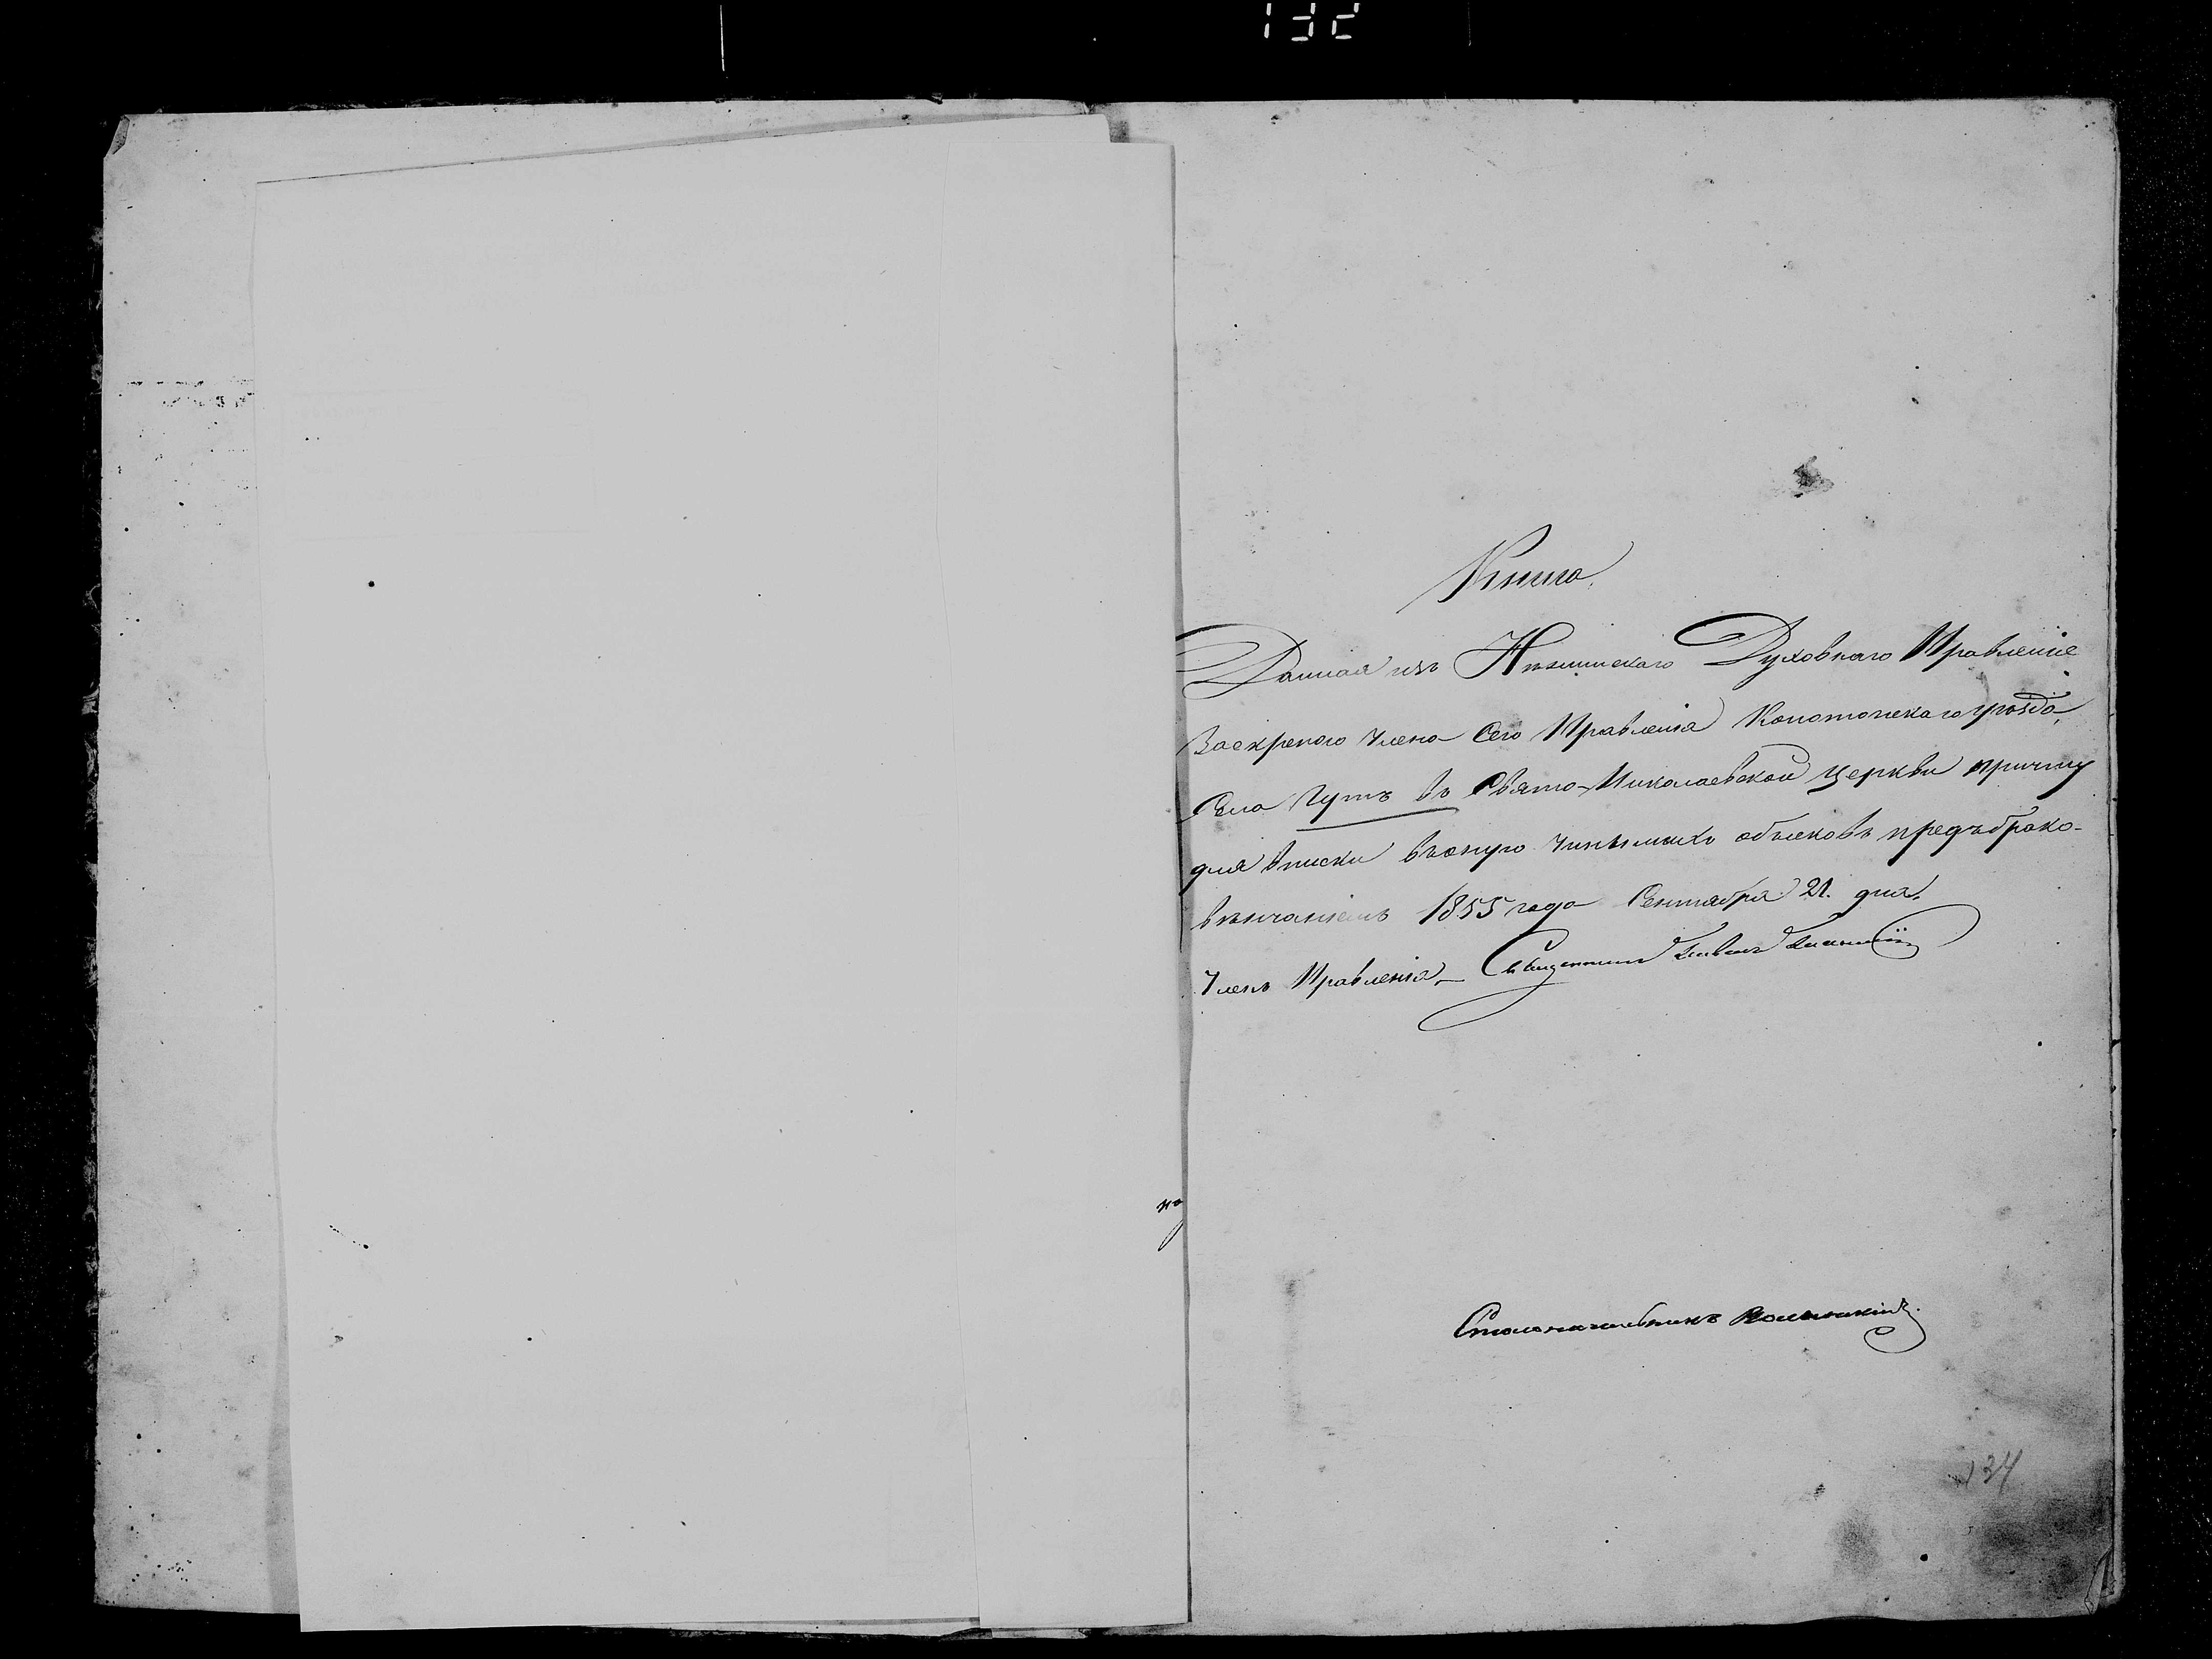 132
Книга.
Данная изъ Нѣжинскаго Духовнаго Правленіе
Заскрепого Члена Сего Правленія Конотопскаго уѣзда,
Села Гутъ въ Свято-Николаевской Церкви причту
для вписки въ оную чинѣмыхъ обысковъ предъ брако-
вѣнчаніемъ 1855 года Сентября 21. дня.
Членъ Правленія, Священникъ
Столоначальникъ
134